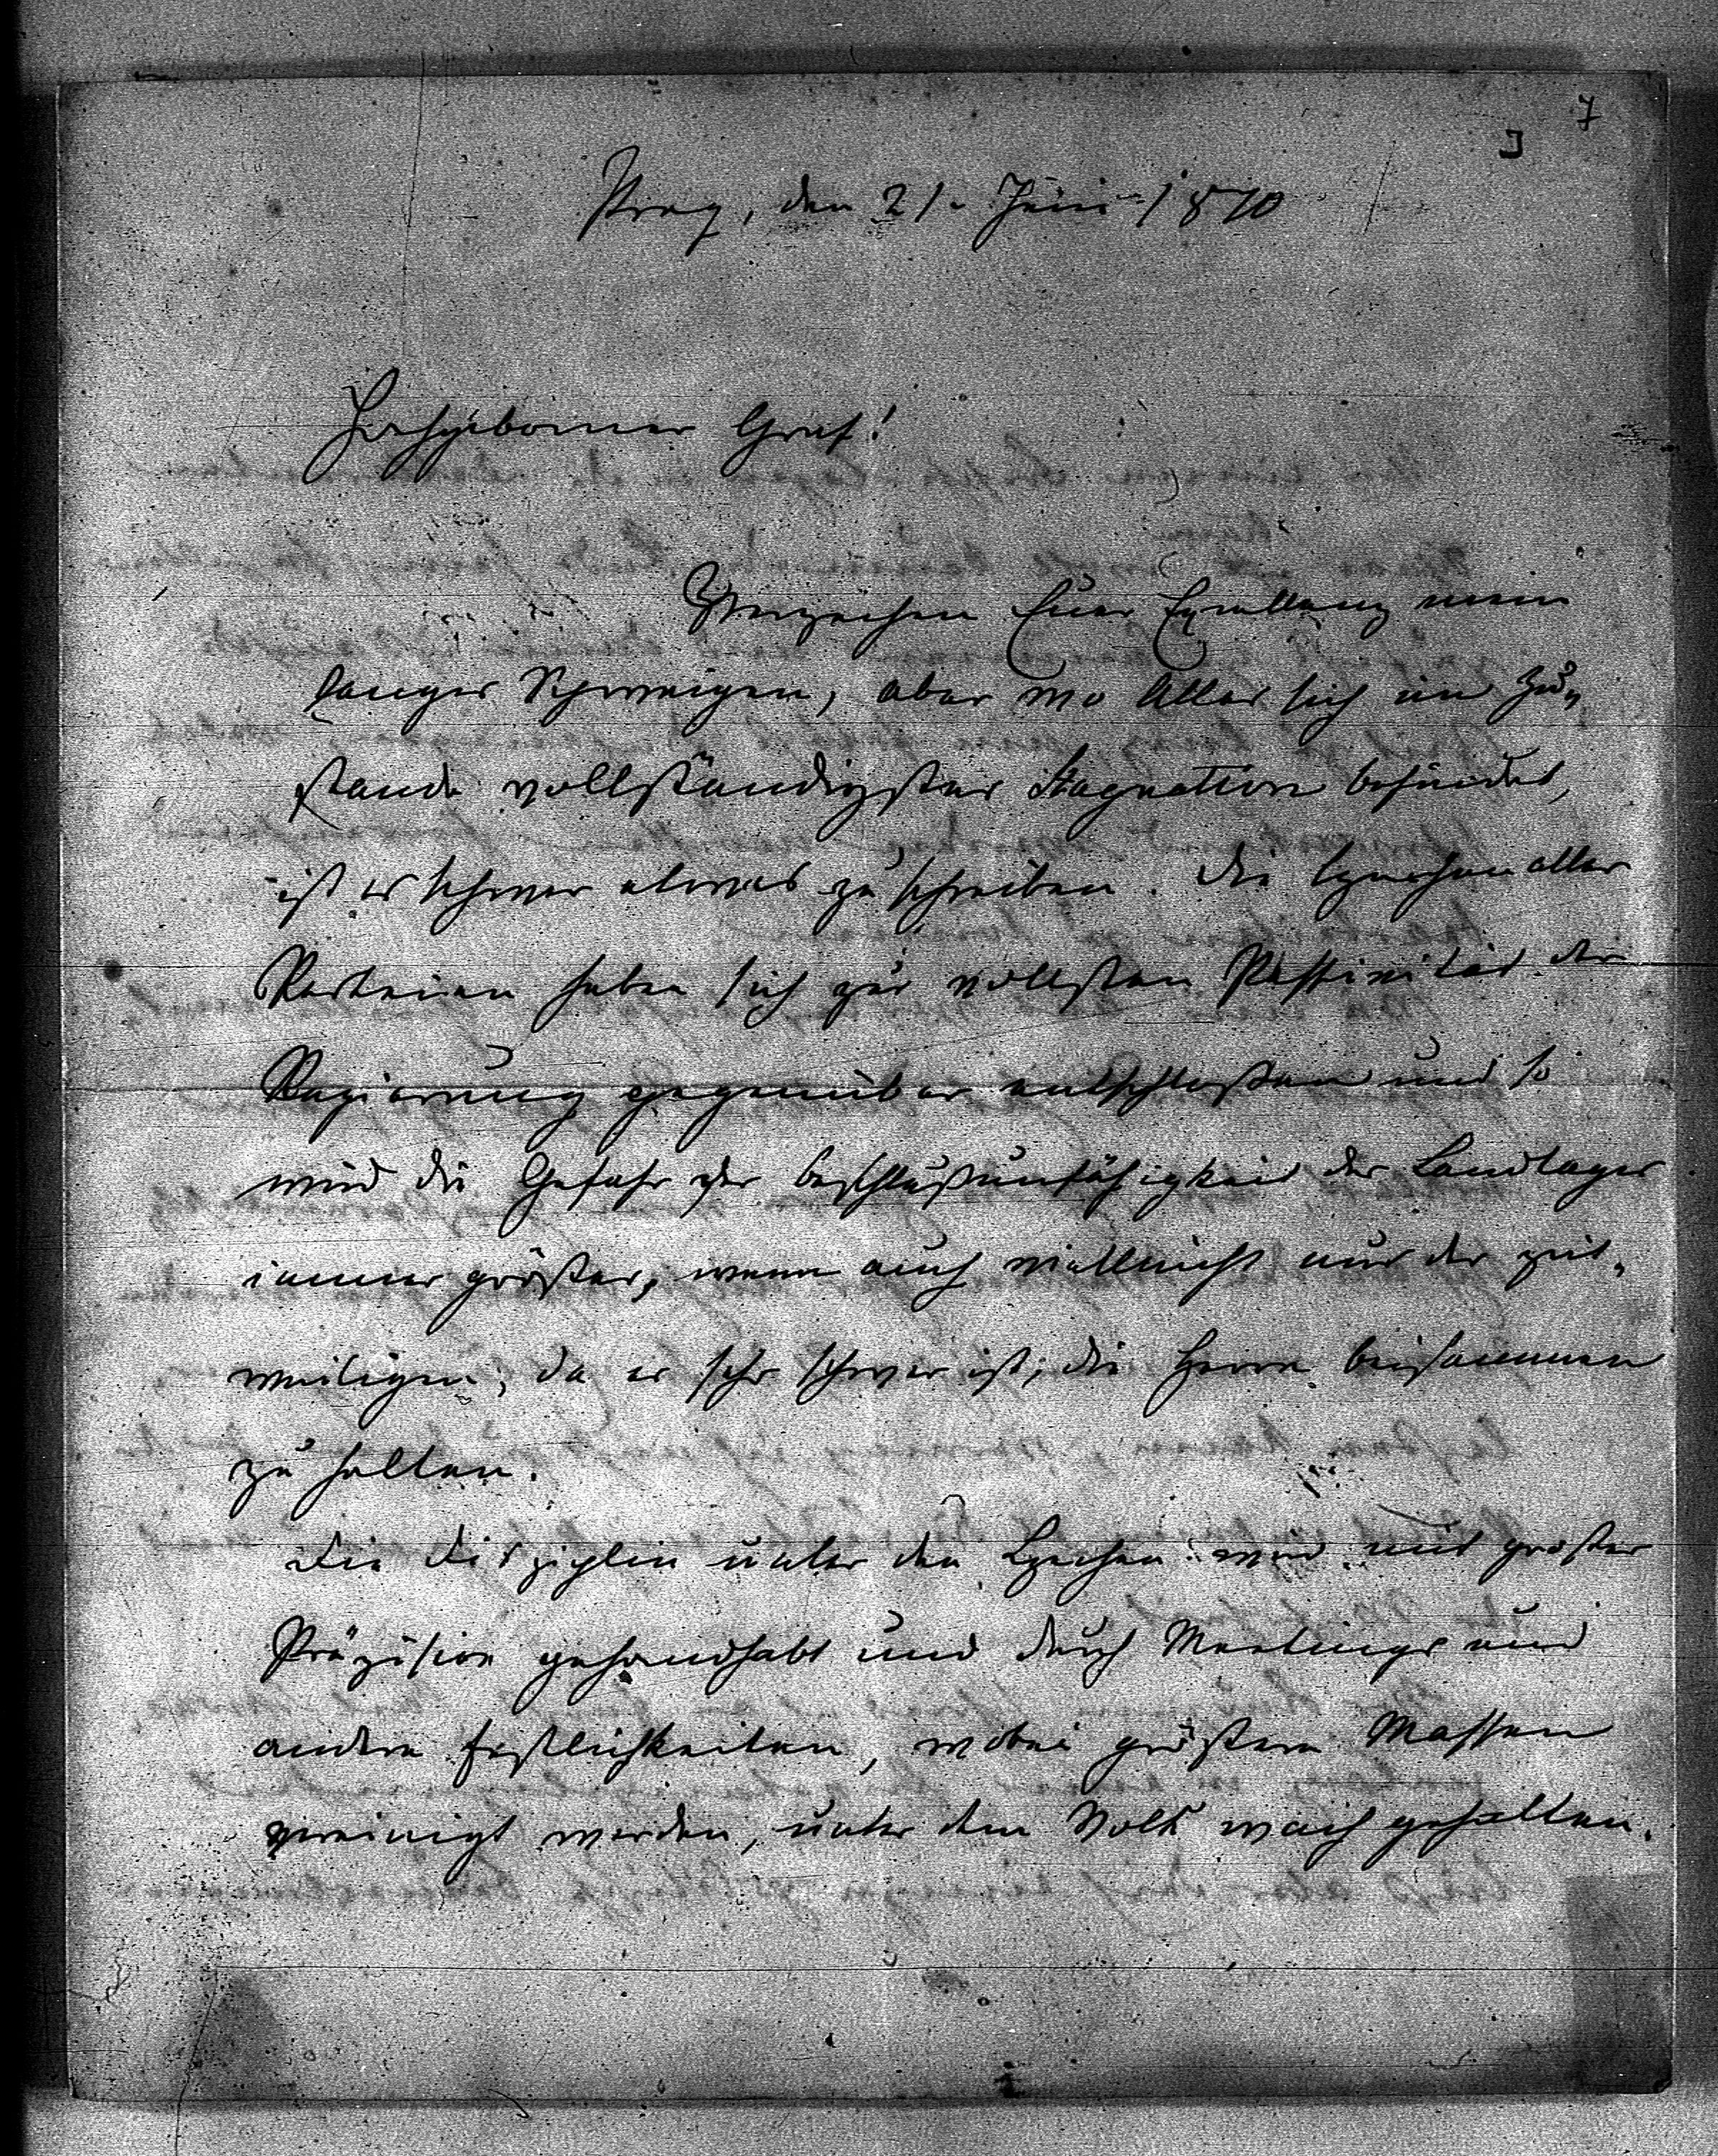 7
J
Prag, den 21. Juni 1870
Hochgeborner Graf!
Verzeihen Euer Exzellenz mein
langes Schweigen, aber wo Alles sich im Zu„
stande vollständigster Stagnation befindet,
ist es schwer etwas zu schreiben. Die Czechen aller
Parteien haben sich zur vollsten Passivität der
Regierung gegenüber entschlossen und so
wird die Gefahr der Beschlußunfähigkeit des Landtages
immer größer, wenn auch vielleicht nur der zeit„
weiligen, da es sehr schwer ist, die Herren beisammen
zu halten.
Die Disziplin unter den Czechen wird mit großer
Präzision gehandhabt und durch Meetings und
andere Festlichkeiten, wobei größere Massen
vereinigt werden, unter dem Volk wach gehalten.